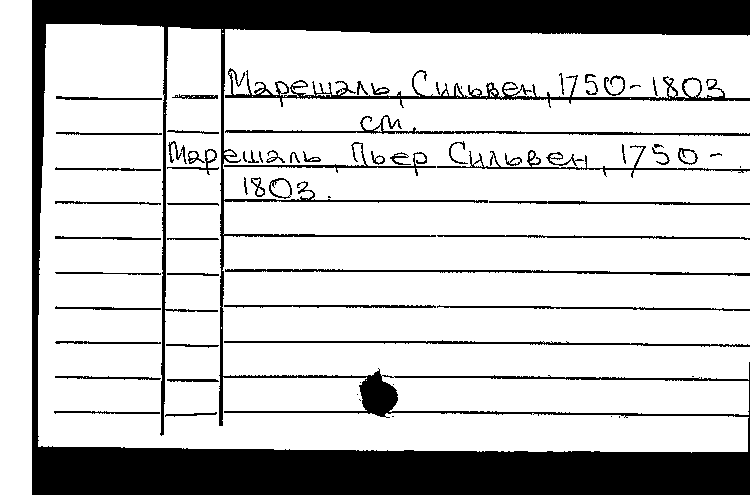 Марешаль, Сильвен, 1750-1803
см.
Марешаль, Пьер Сильвен, 1750-
1803.